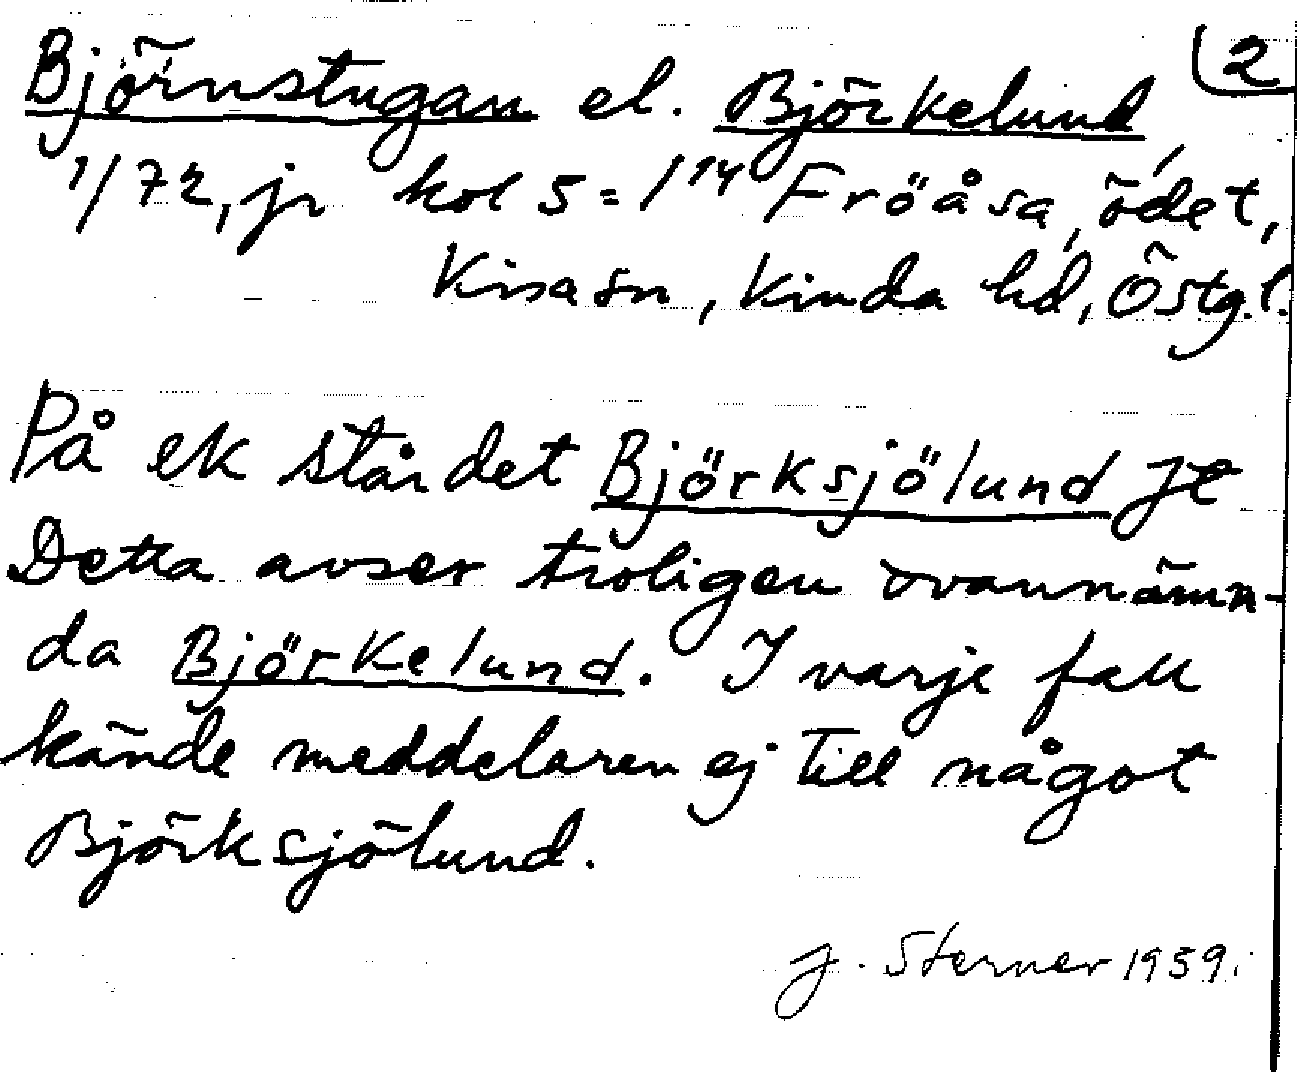 2
Björnstugan el. Björkelund
1/72, jr kol 5 = 1 14 Fröåsa, ödet,
Kisa sn, Kinda hd, Östg.l.
På ek står det Björksjölund
Detta avser troligen ovannämn-
da Björkelund. I varje fall
kände meddelaren ej till något
Björksjölund.
J. Sterner 1959.